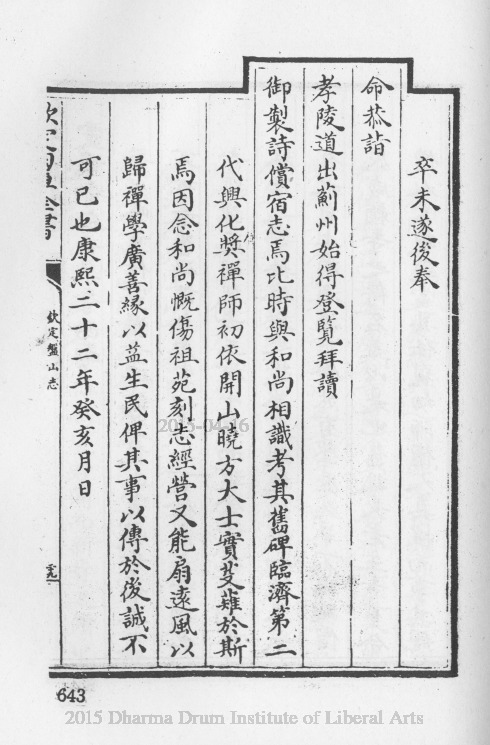 卒未遂後奉
命恭詣
孝陵道出薊州始得登覽拜讀
御製詩償宿志焉比時與和尚相識考其舊碑臨濟第二
代興化奬禪師初依開山曉方大士實芟薙於斯
焉因念和尚慨傷祖苑刻志經營又能扇遠風以
歸禪學廣善緣以益生民俾其事以傳於後誠不
可已也康熙二十二年癸亥月日
欽定四庫全書
欽定盤山志
643
2015-04-16
2015 Dharma Drum Institute of Liberal Arts